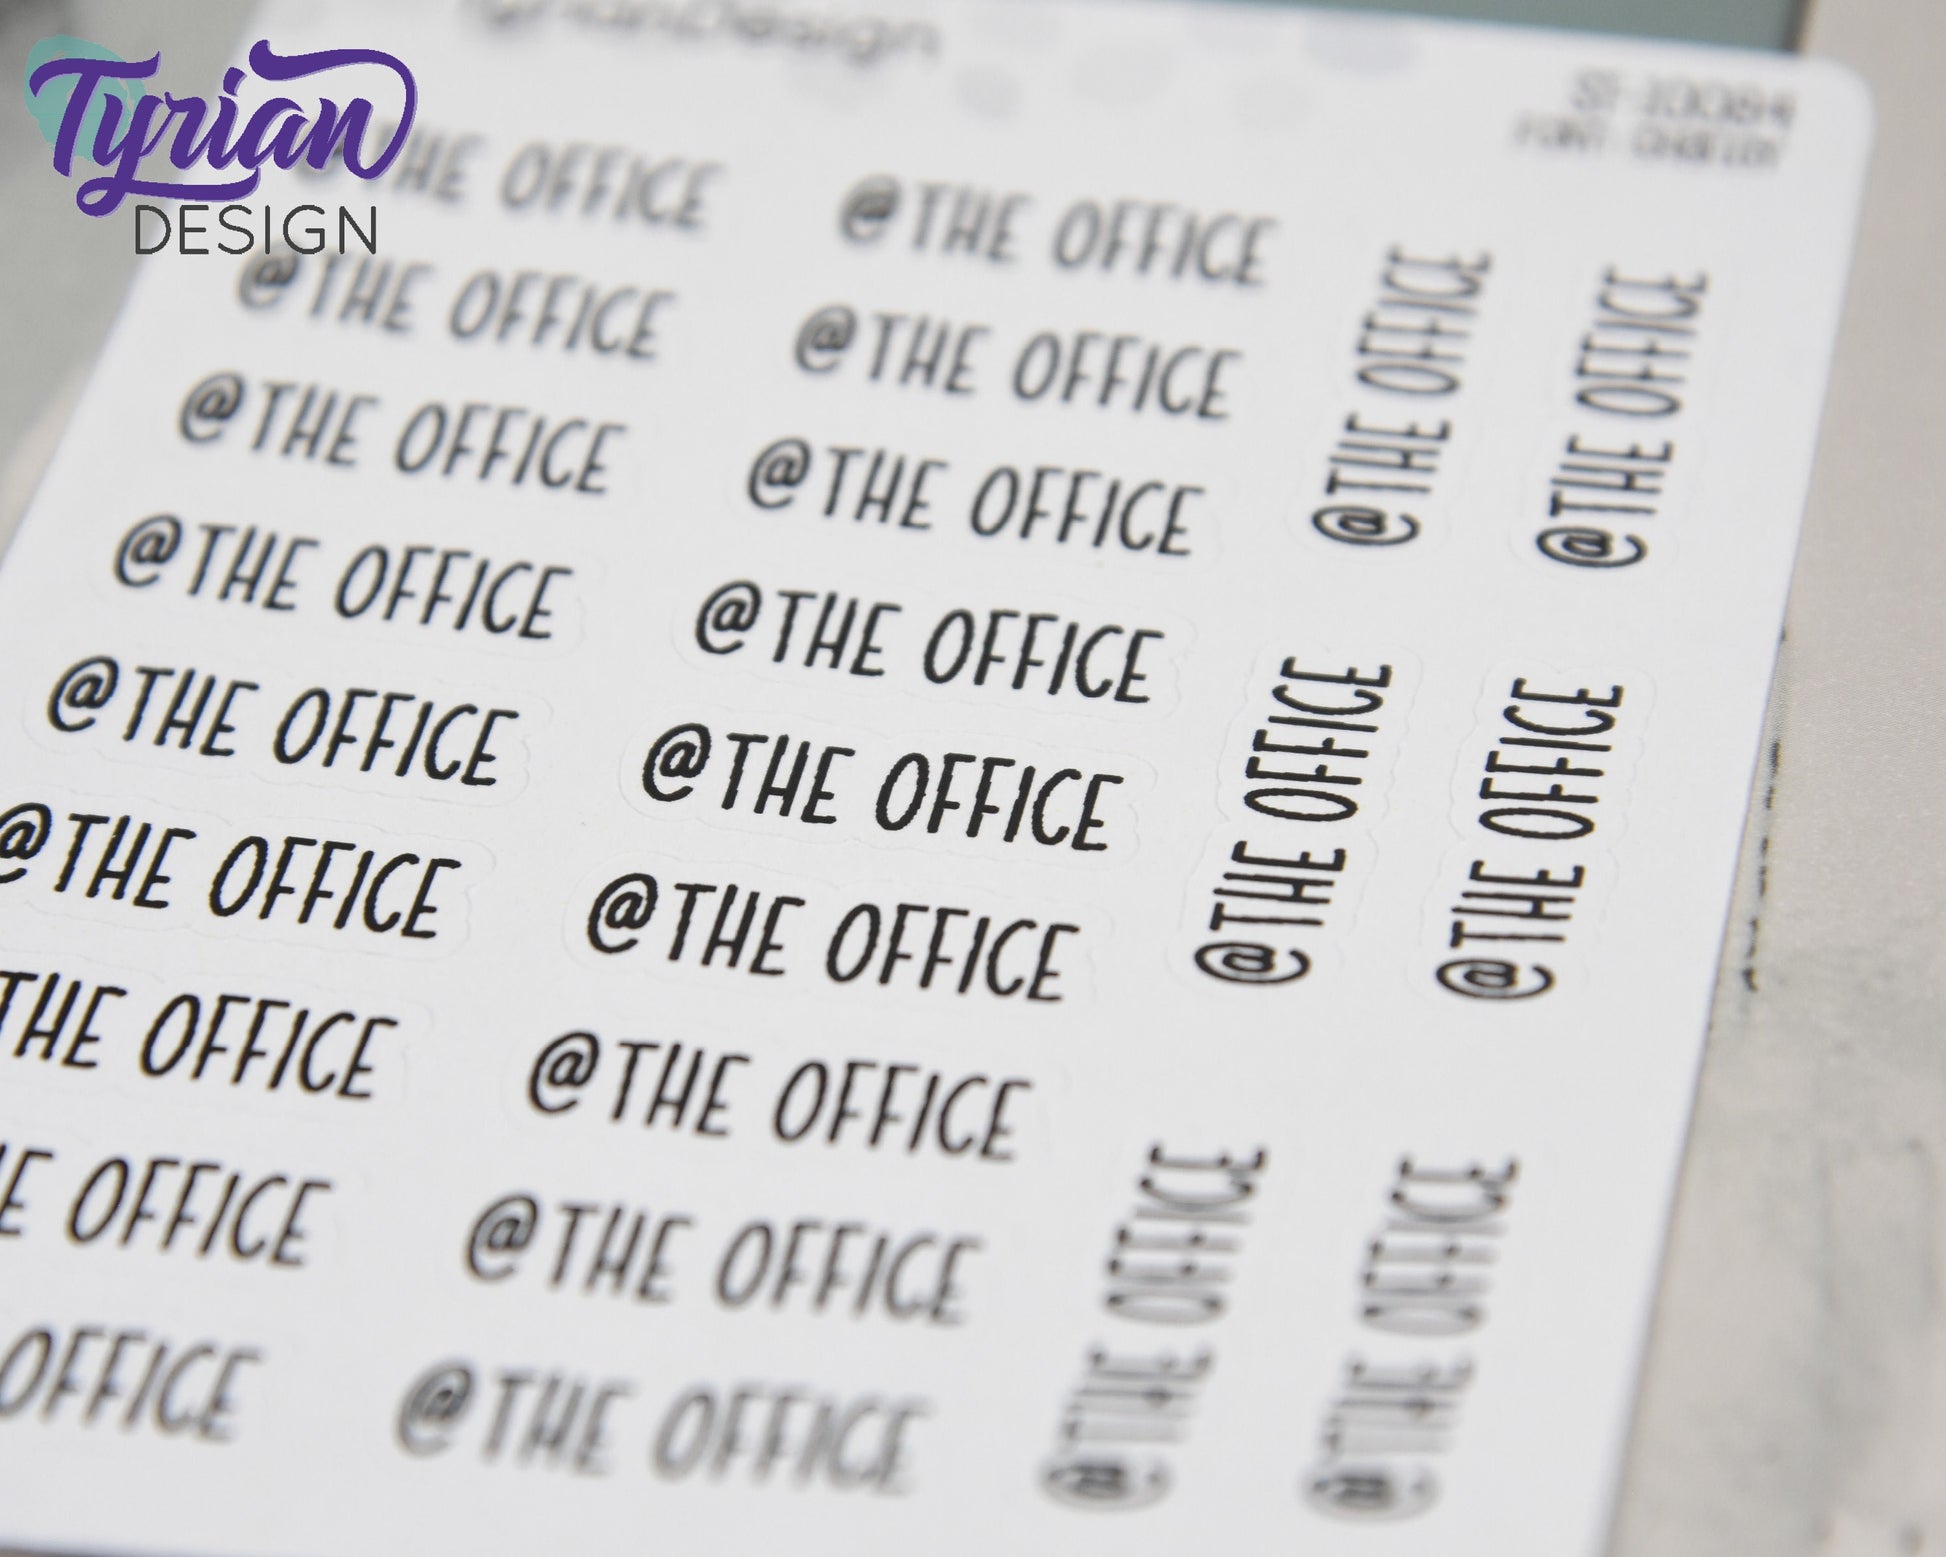 Tyrian
DESIGN
TyrianDesign
@THE OFFICE
@THE OFFICE
@THE OFFICE
@THE OFFICE
@THE OFFICE
@THE OFFICE
@THE OFFICE
@THE OFFICE
@THE OFFICE
@THE OFFICE
@THE OFFICE
@THE OFFICE
@THE OFFICE
THE OFFICE
@THE OFFICE
OFFICE
@THE OFFICE
OFFICE
@THE OFFICE
@THE OFFICE
@THE OFFICE
@THE OFFICE
@THE OFFICE
@THE OFFICE
@THE OFFICE